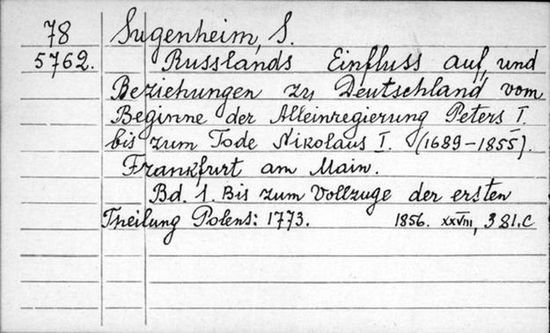 78 Sugenheim, S.
5762. Russlands Einfluss auf, und
Beziehungen zu Deutschland vom
Beginne der Alleinregierung Peters I.
bis zum Tode Nikolaus I. (1689-1855).
Frankfurt am Main.
Bd. 1. Bis zum Vollzuge der ersten
Theilung Polens: 1773. 1856. XXVIII, 381.c